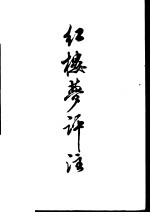 红楼梦评注